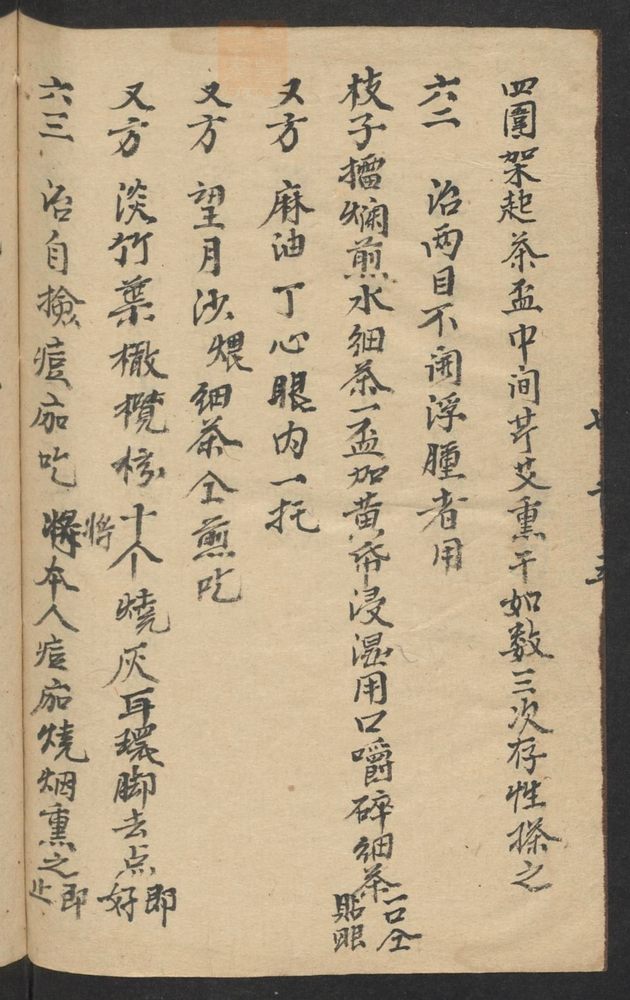 四圍架起茶盃中间芹艾熏干如数三次存性搽之
六二 治两目不開浮腫者用
枝子擂爛煎水細茶一盃加黄帋浸湿用口嚼碎細茶一口仝貼眼
又方 麻油丁心眼内一托
又方 望月沙煨細茶仝煎吃
又方 淡竹葉橄欖核十个燒灰耳環脚去点即好
六三 治自撿痘茄吃將本人痘茄燒烟熏之即止
將